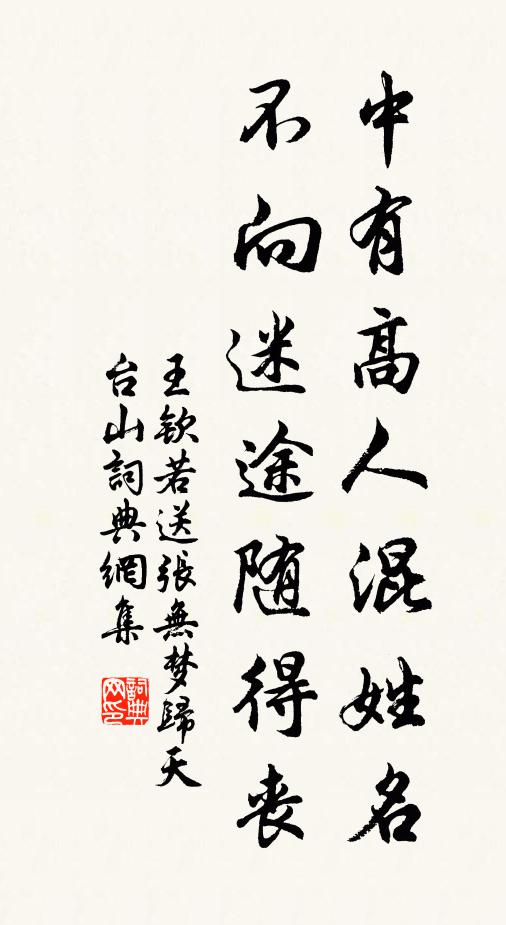 中有高人混姓名
不向迷途随得丧
王钦若送張無梦歸天
台山詞典網集
詞典网印